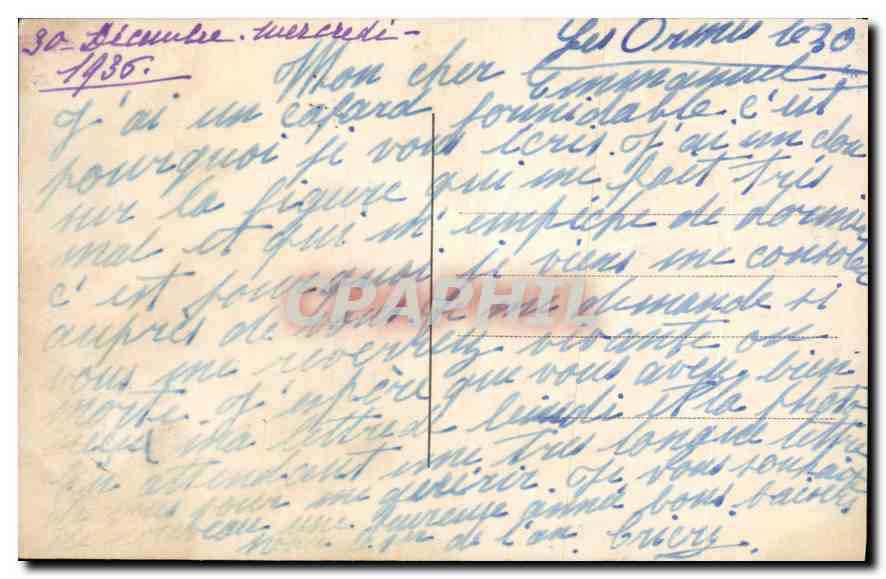 30 - Décembre. Mercredi -
1936.
Les Ormes le 30
Mon cher Emmanuel
J'ai un cafard formidable c'est
pourquoi je vous écris. J'ai un clou
sur la figure qui me fait très
mal et qui m'empêche de dormir
c'est pourquoi je viens me consoler
auprès de vous je me demande si
vous me reverrez vivante ou
morte J'espère que vous avez bien
ma lettre de lundi et la photo
En attendant une très longue lettre
de vous pour me guérir. Je vous souhaite
de nouveau une heureuse année bons baisers
de l'an. Cricry
CPAPHIL